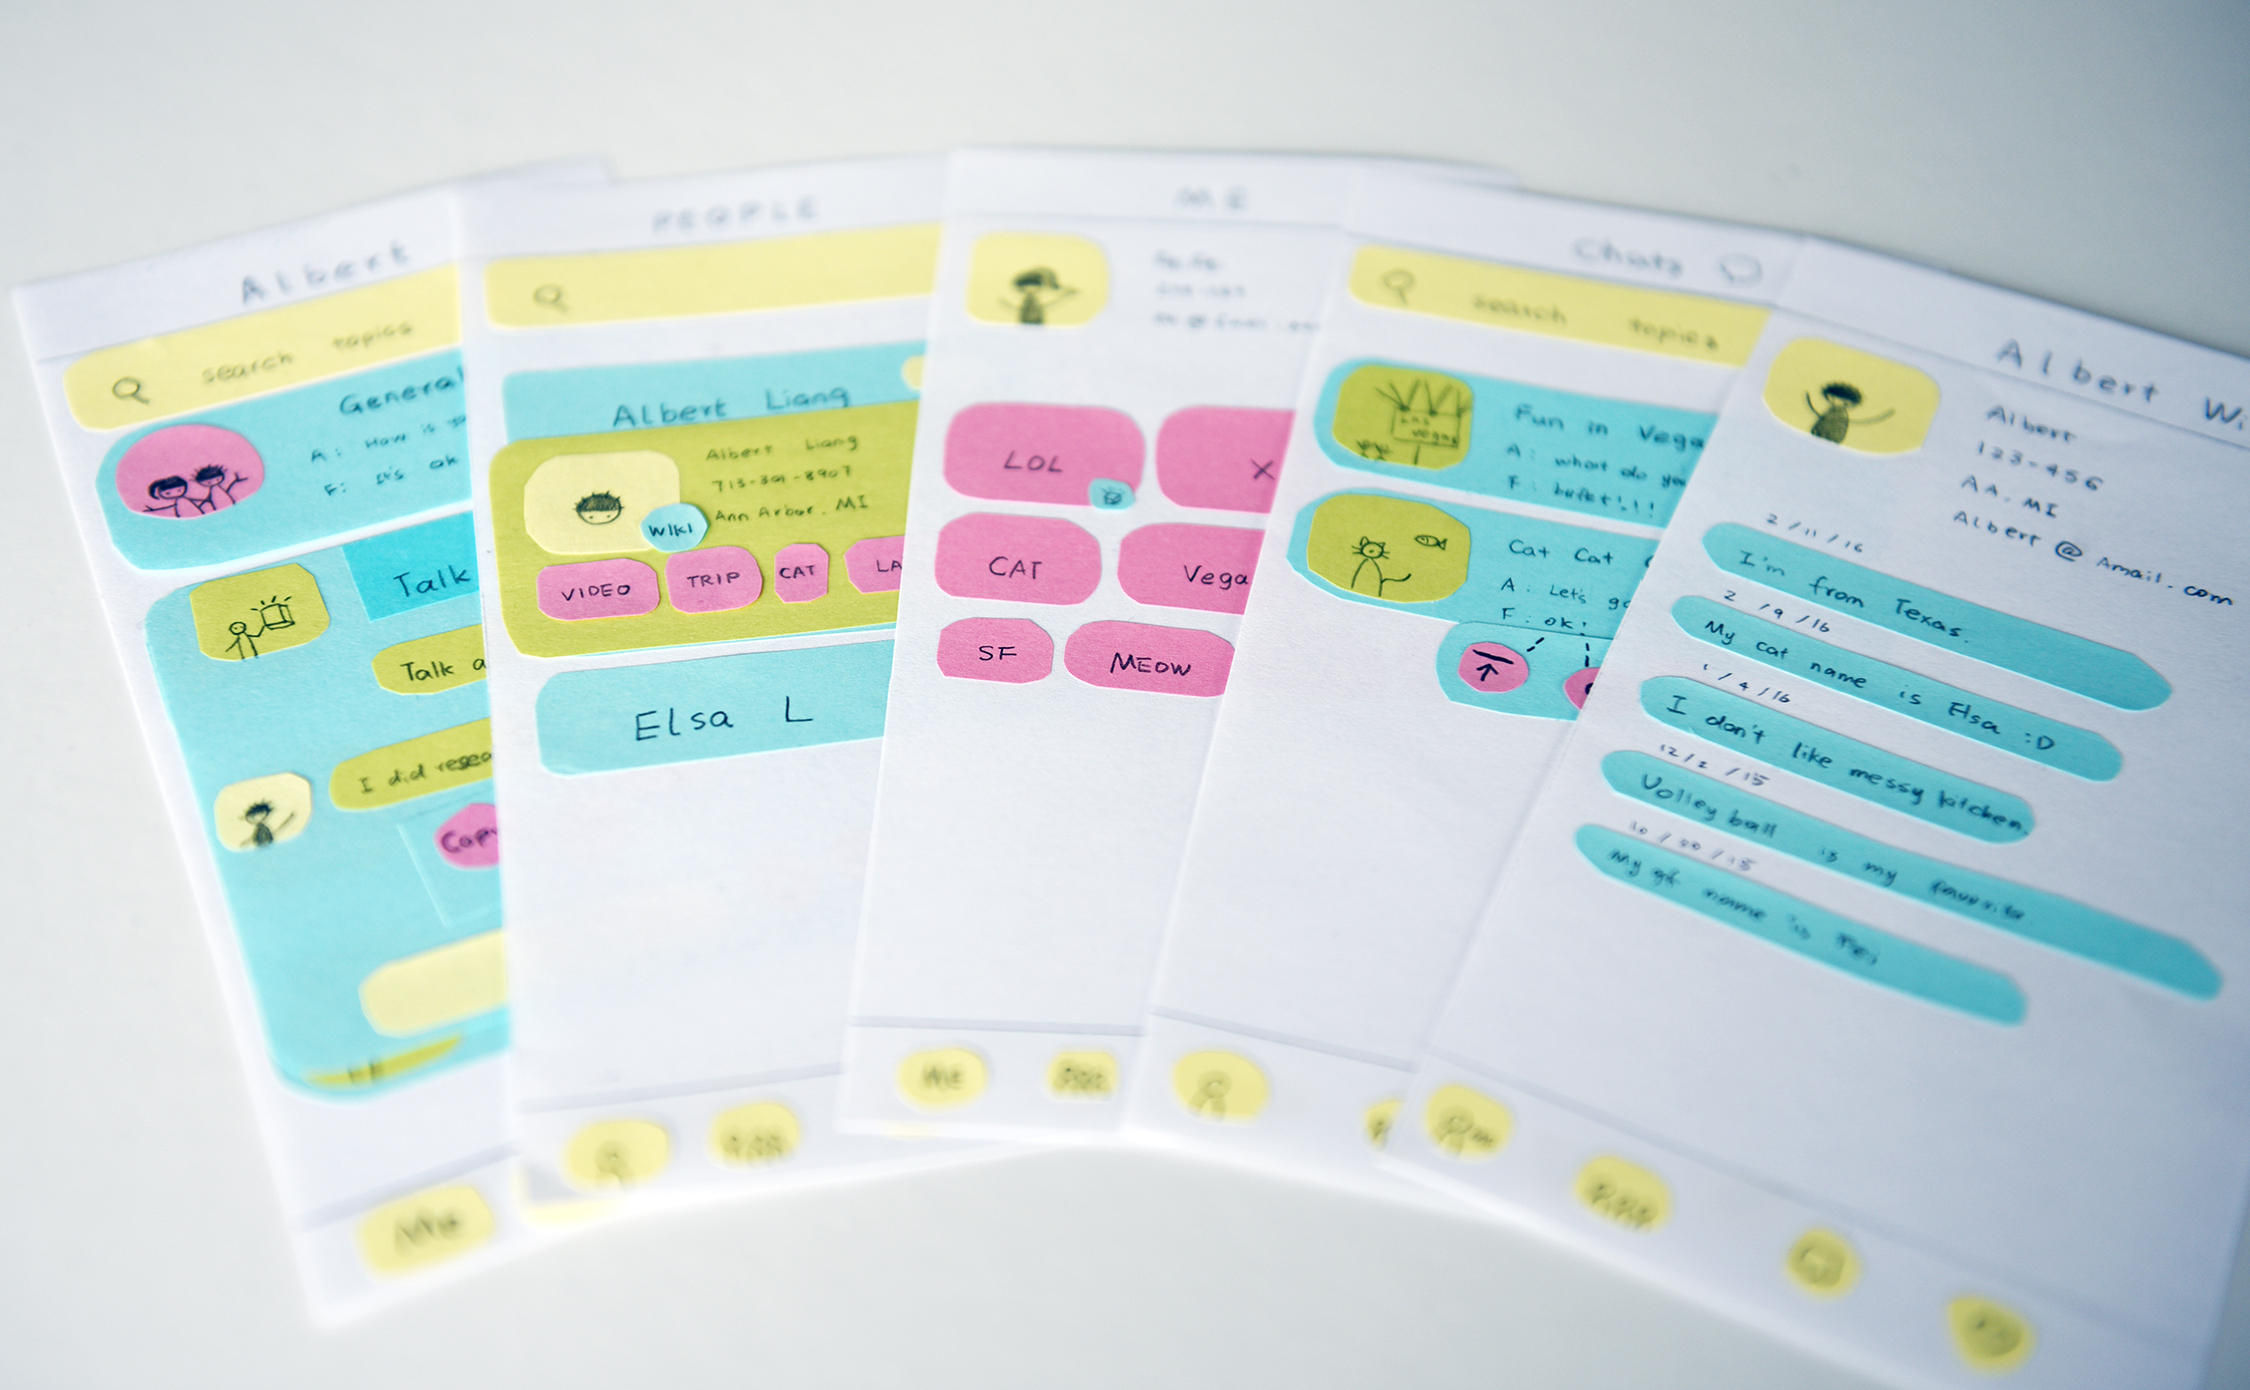 Albert
search topics
General
A: How is
F: It's ok
Talk
Talk a
I did resea
Cop
Me
PEOPLE
Albert Liang
Albert Liang
Ann Arbor. MI
WIKI
VIDEO
TRIP
CAT
LA
Elsa L
ME
LOL
X
CAT
Vega
SF
MEOW
Me
Chats
search topics
Las
Vegas
Fun in Vega
A: what do you
F: buffet!!!
Cat Cat
A: Let's go
F: ok!
Albert Wi
Albert
123-456
AA. MI
Albert @ Amail.com
2/11/16
I'm from Texas.
2/9/16
My cat name is Elsa :D
1/4/16
I don't like messy kitchen.
12/2/15
Volleyball is my favorite.
10/30/15
My gf name is Fei